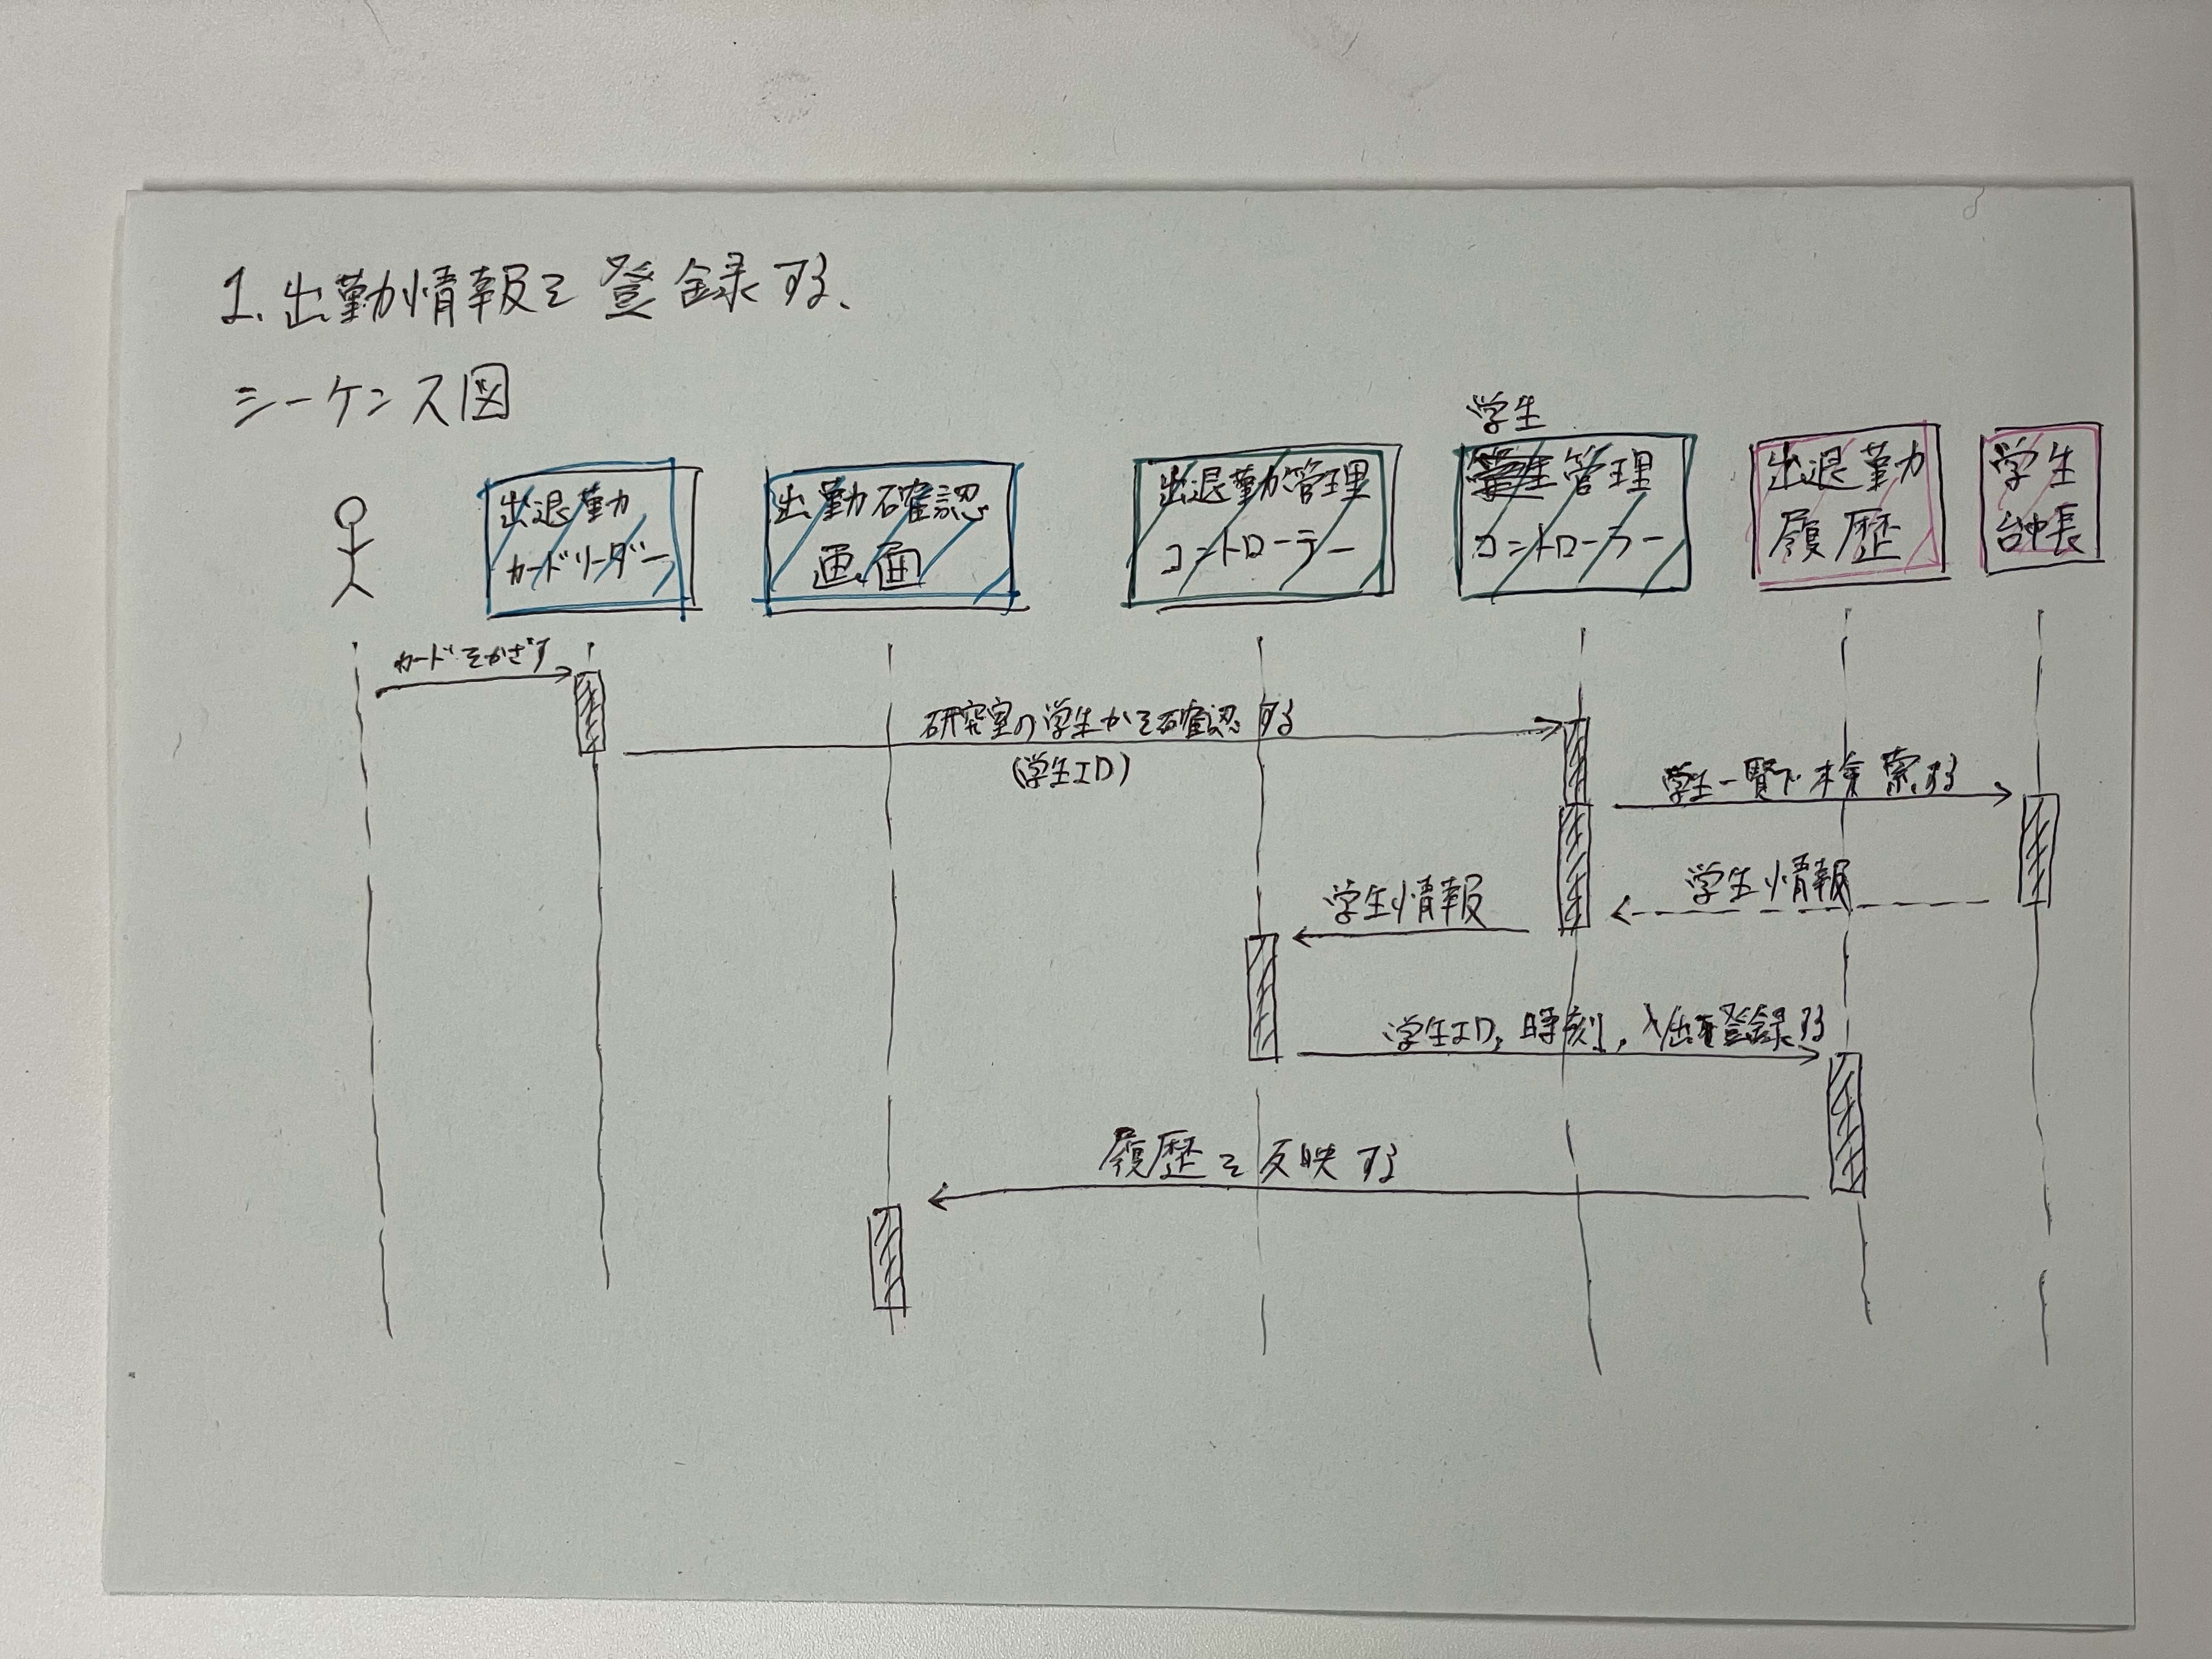 1. 出勤情報を登録する、
シーケンス図
出退勤
カードリーダー
出勤確認
画面
出退勤管理
コントローラー
学生
管理
コントローラー
出退勤
履歴
学生
台帳
カードをかざす
研究室の学生かを確認する
(学生ID)
学生一覧で検索する
学生情報
学生情報
学生ID, 時刻, 入/出を登録する
履歴を反映する